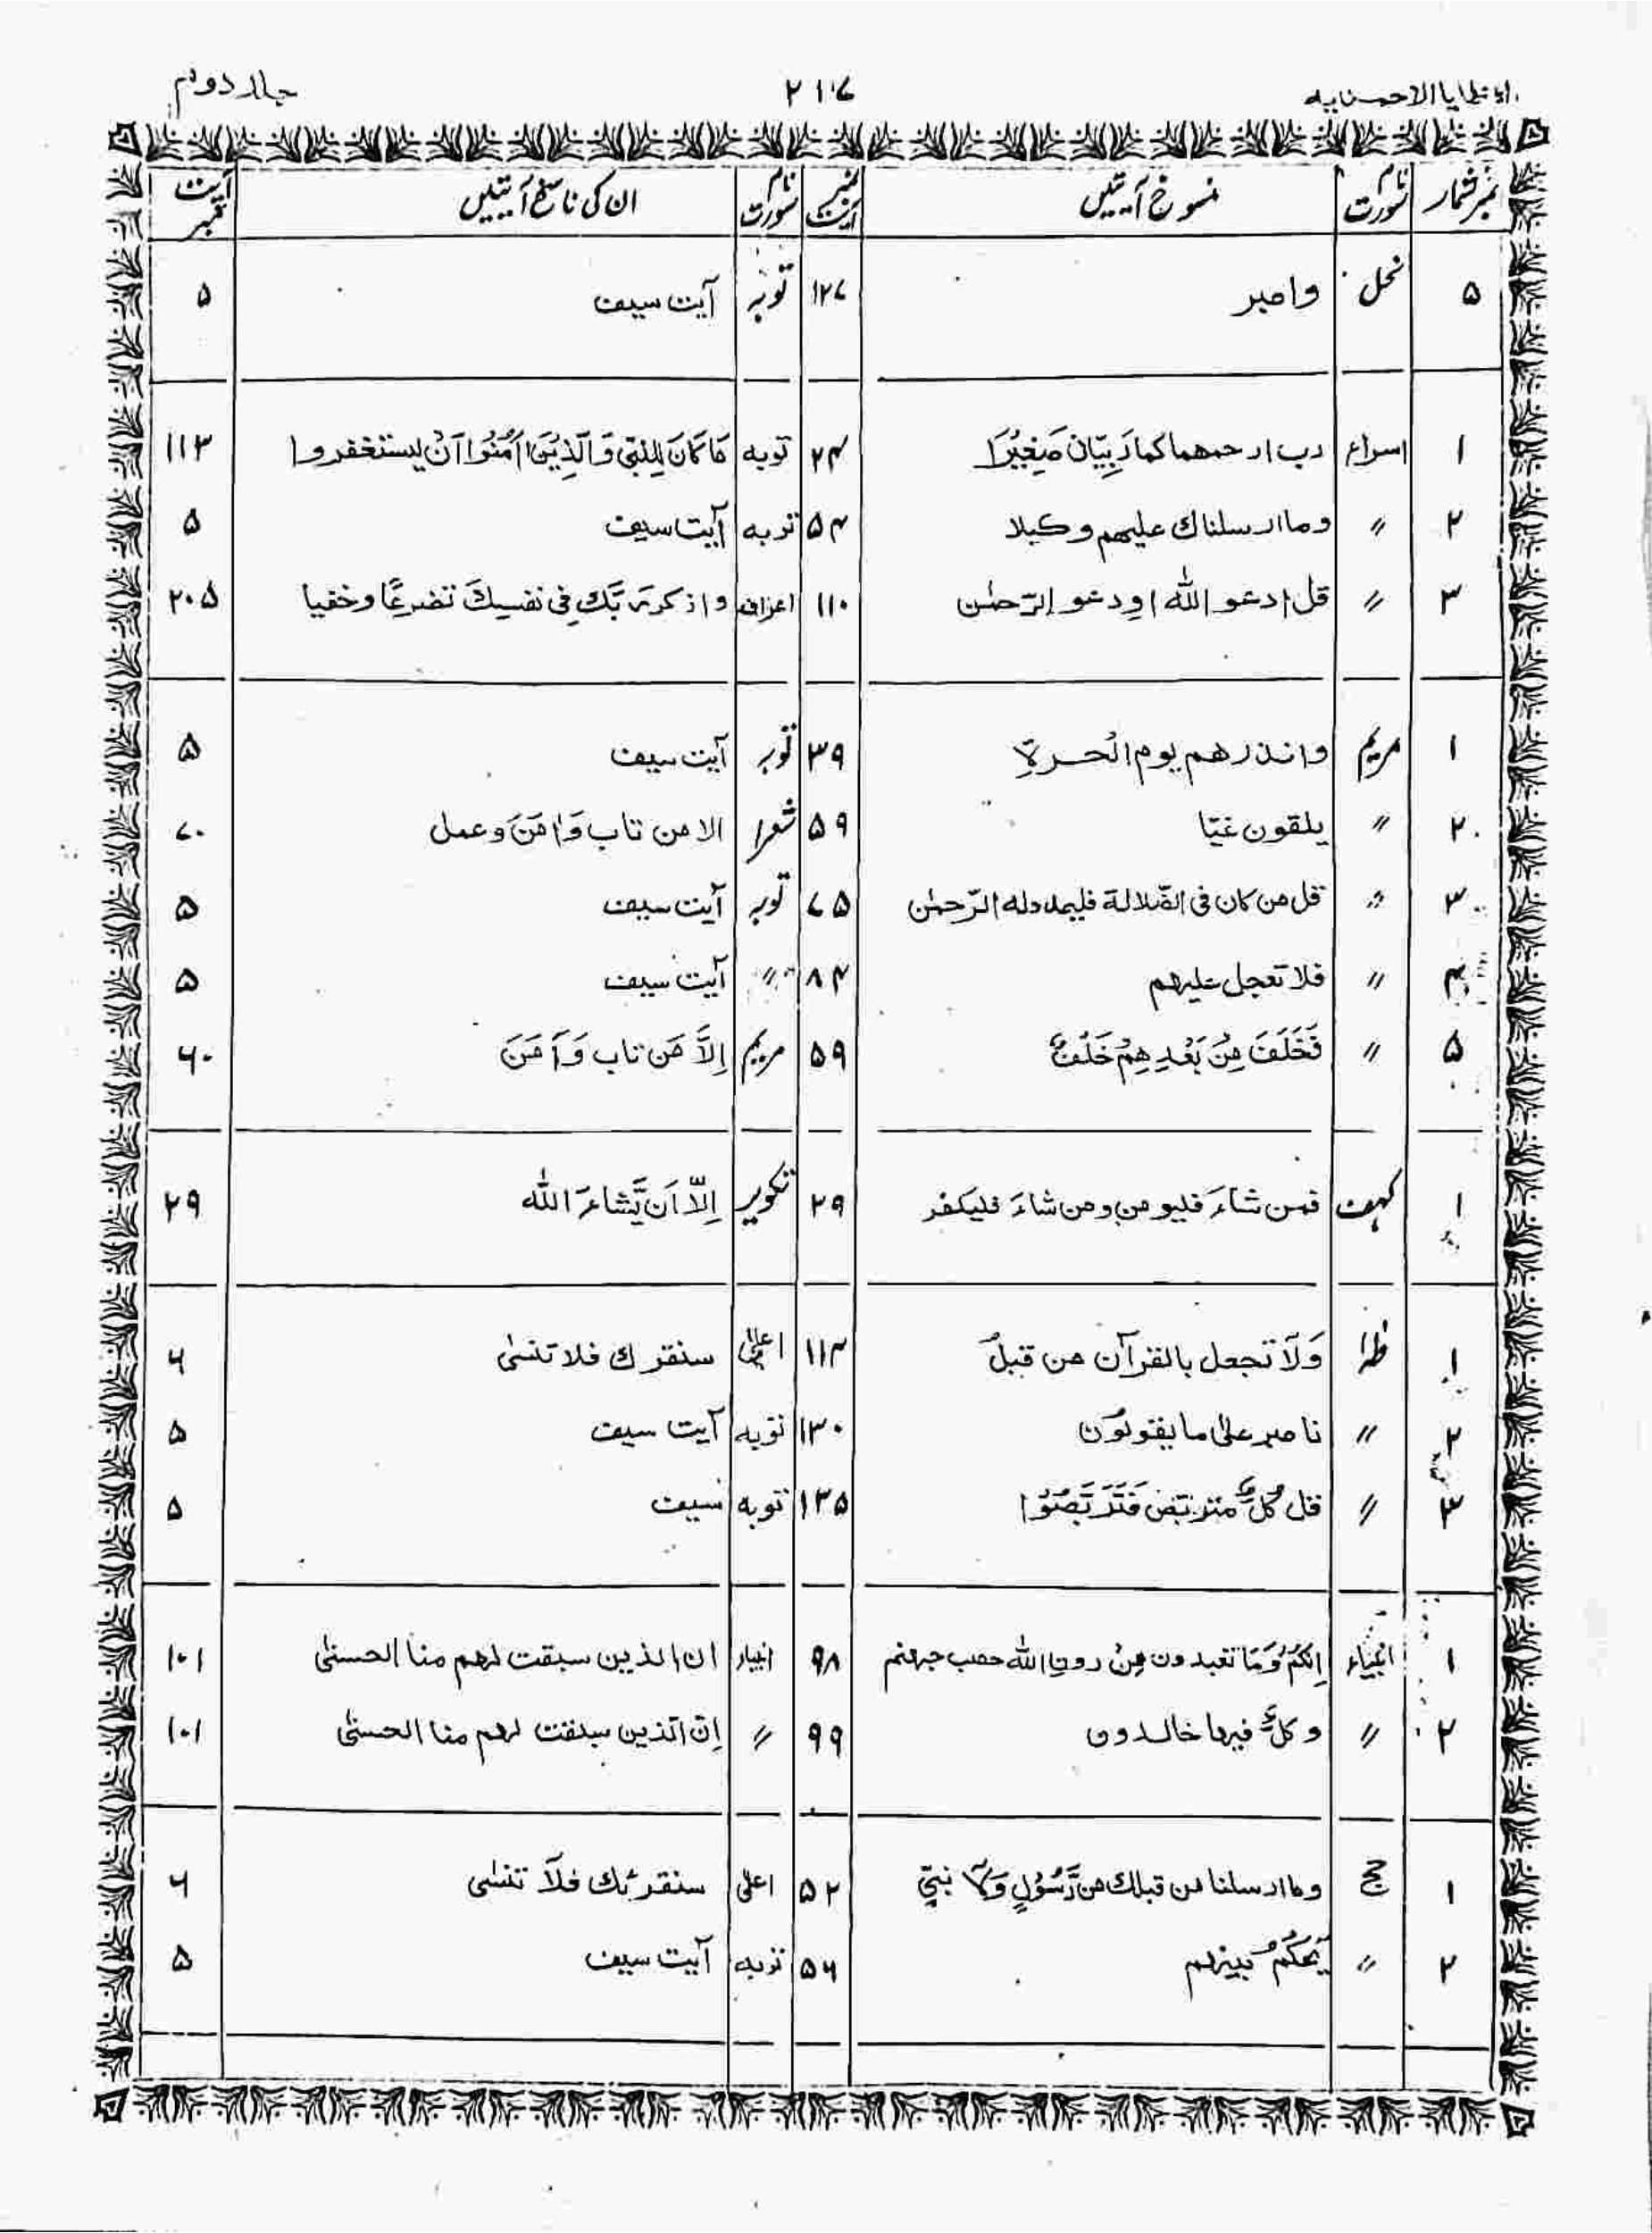 العطایا الاحمدیہ ۲۱۷ جلد دوم
نمبر شمار نام سورت منسوخ آیتیں نمبر آیت نام سورت ان کی ناسخ آیتیں آیت نمبر
۵ نحل واصبر ۱۲۷ توبہ آیت سیف ۵
۱ اسراء رب ارحمهما كما رَبِّيَانِ صَغِيْرًا ۲۴ توبه مَا كَانَ لِلنَّبِيِّ وَالَّذِيْنَ اٰمَنُوْا اَنْ يستغفروا ۱۱۳
۲ 〃 وما ارسلناك عليهم وكيلا ۵۴ توبه آیت سیف ۵
۳ 〃 قل ادعو الله اودعو الرّحمٰن ۱۱۰ اعراف واذكر رَبَّكَ فِى نفسِكَ تضرعًا وخفيا ۲۰۵
۱ مریم وانذرهم يوم الحسرةِ ۳۹ توبہ آیت سیف ۵
۲ 〃 يلقون غيّا ۵۹ شعرا الا من تاب وَاٰمَنَ وعمل ۷۰
۳ 〃 قل من كان فى الضّلالة فليمدد له الرّحمٰن ۷۵ توبہ آیت سیف ۵
۴ 〃 فلا تعجل عليهم ۸۴ 〃 آیت سیف ۵
۵ 〃 فَخَلَفَ مِنْ بَعْدِهِمْ خَلْفٌ ۵۹ مریم اِلَّا مَن تاب وَآمَنَ ۶۰
۱ کہف فمن شاءَ فليومن ومن شاءَ فليكفر ۲۹ تکویر اِلّا اَن يَّشاءَ الله ۲۹
۱ طٰہٰ وَلَا تجعل بالقرآن من قبلُ ۱۱۴ اعلیٰ سنقرك فلا تنسٰى ۶
۲ 〃 فاصبر علىٰ ما يقولون ۱۳۰ توبه آیت سیف ۵
۳ 〃 قل كُلٌّ متربّص فَتَرَبَّصُوْا ۱۳۵ توبه سیف ۵
۱ انبیاء اِنَّكُمْ وَمَا تعبدون مِنْ دونِ الله حصب جهنم ۹۸ انبیاء ان الذين سبقت لهم منا الحسنىٰ ۱۰۱
۲ 〃 وكلٌّ فيها خالدون ۹۹ 〃 اِنّ الّذين سبقت لهم منا الحسنىٰ ۱۰۱
۱ حج وما ارسلنا من قبلك من رَّسُوْلٍ وَلَا نبيّ ۵۲ اعلیٰ سنقرئك فلَا تنسٰى ۶
۲ 〃 يَحْكُمُ بينهم ۵۶ توبه آیت سیف ۵